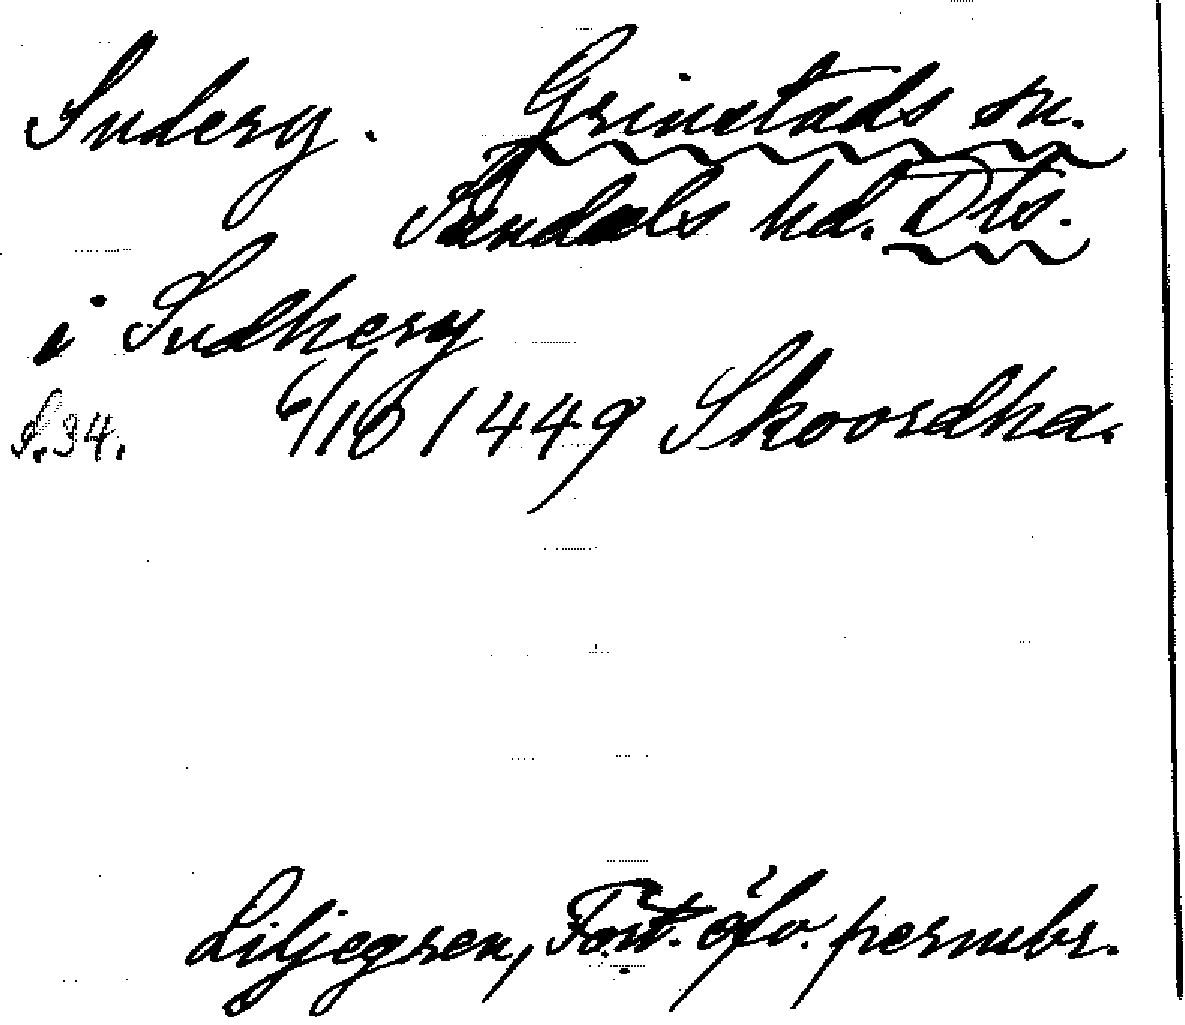 Suderg. Grinstads sn.
Sundals hd. Dls.
i Sudherg
S.34. 6/10 1449 Skoordha.
Liljegren, Fört. öfv. permbr.